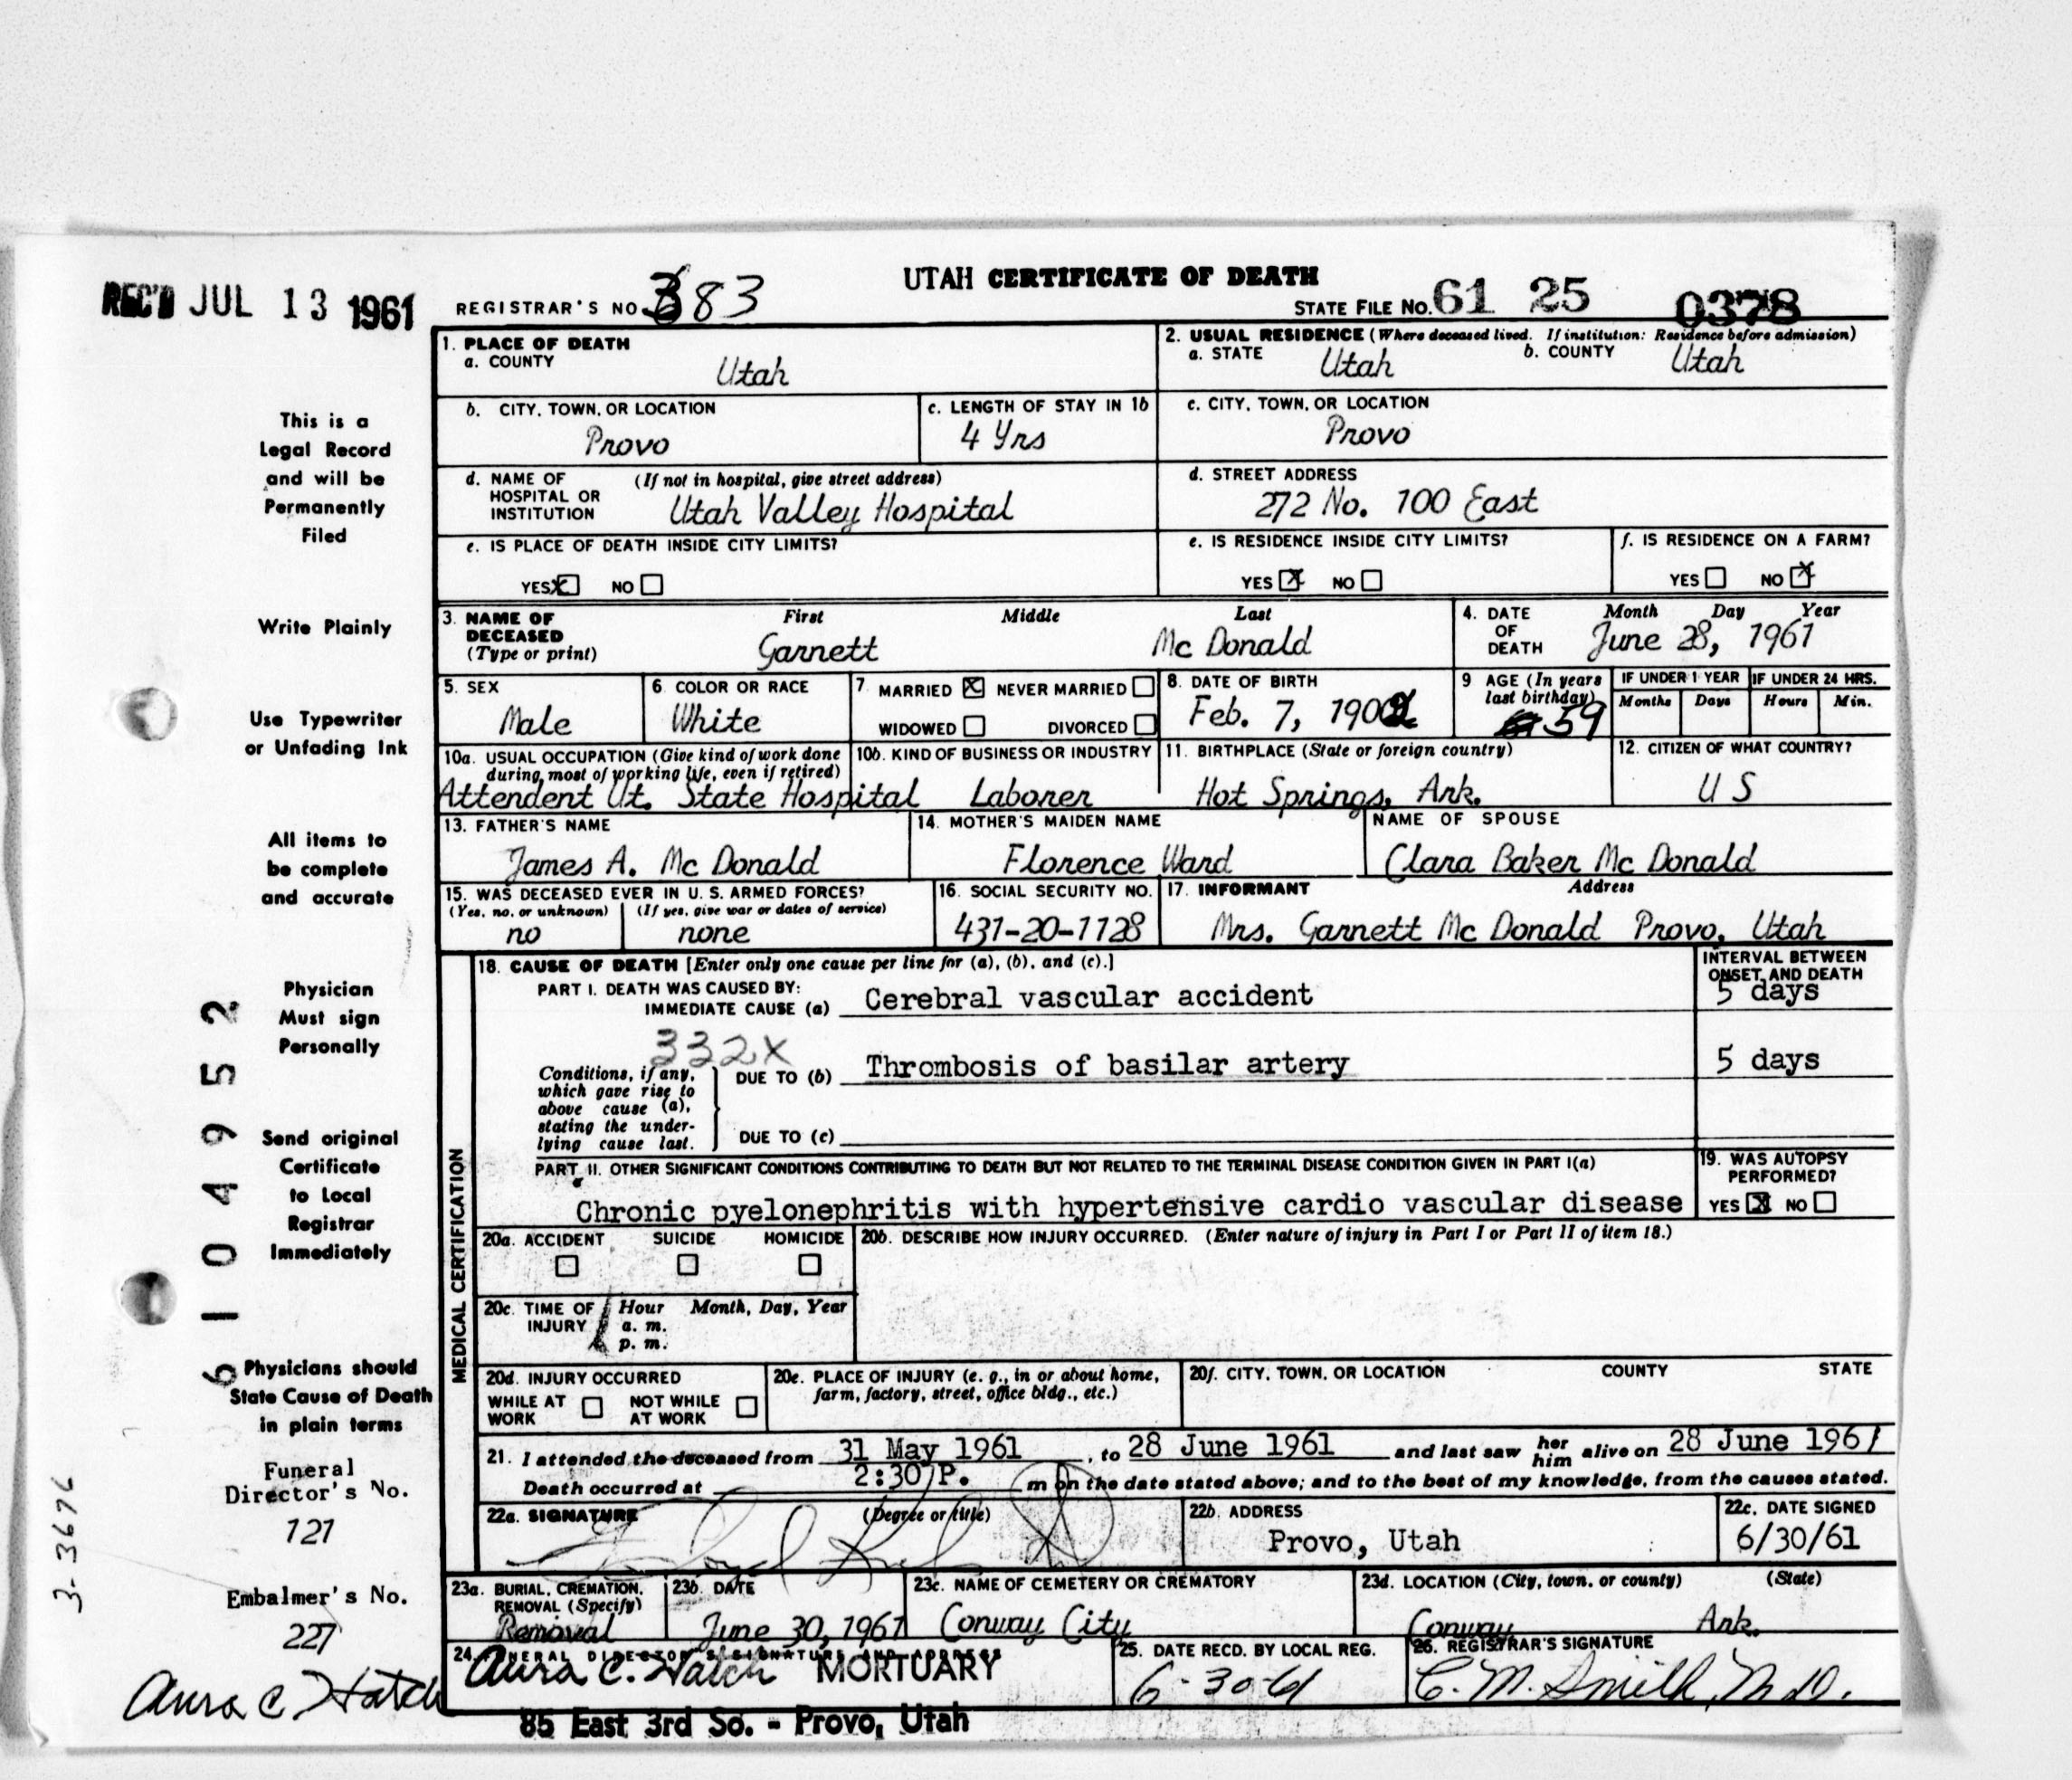 REC'D JUL 13 1961
UTAH CERTIFICATE OF DEATH
REGISTRAR'S NO. 383
STATE FILE NO. 61 25 0378
1. PLACE OF DEATH
a. COUNTY
Utah
2. USUAL RESIDENCE (Where deceased lived. If institution: Residence before admission)
a. STATE Utah b. COUNTY Utah
b. CITY, TOWN, OR LOCATION
Provo
c. LENGTH OF STAY IN 1b
4 Yrs
c. CITY, TOWN, OR LOCATION
Provo
d. NAME OF HOSPITAL OR INSTITUTION (If not in hospital, give street address)
Utah Valley Hospital
d. STREET ADDRESS
272 No. 100 East
e. IS PLACE OF DEATH INSIDE CITY LIMITS?
YES X NO
e. IS RESIDENCE INSIDE CITY LIMITS?
YES X NO
f. IS RESIDENCE ON A FARM?
YES NO X
3. NAME OF DECEASED (Type or print)
First Middle Last
Garnett Mc Donald
4. DATE OF DEATH Month Day Year
June 28, 1961
5. SEX
Male
6. COLOR OR RACE
White
7. MARRIED X NEVER MARRIED
WIDOWED DIVORCED
8. DATE OF BIRTH
Feb. 7, 1902
9 AGE (In years last birthday)
59
IF UNDER 1 YEAR
Months Days
IF UNDER 24 HRS.
Hours Min.
10a. USUAL OCCUPATION (Give kind of work done during most of working life, even if retired)
Attendent Ut. State Hospital
10b. KIND OF BUSINESS OR INDUSTRY
Laborer
11. BIRTHPLACE (State or foreign country)
Hot Springs, Ark.
12. CITIZEN OF WHAT COUNTRY?
U S
13. FATHER'S NAME
James A. Mc Donald
14. MOTHER'S MAIDEN NAME
Florence Ward
NAME OF SPOUSE
Clara Baker Mc Donald
15. WAS DECEASED EVER IN U. S. ARMED FORCES?
(Yes, no, or unknown) (If yes, give war or dates of service)
no none
16. SOCIAL SECURITY NO.
431-20-1128
17. INFORMANT Address
Mrs. Garnett Mc Donald Provo, Utah
MEDICAL CERTIFICATION
18. CAUSE OF DEATH [Enter only one cause per line for (a), (b), and (c).]
INTERVAL BETWEEN ONSET AND DEATH
PART I. DEATH WAS CAUSED BY:
IMMEDIATE CAUSE (a) Cerebral vascular accident 5 days
332X
Conditions, if any, which gave rise to above cause (a), stating the underlying cause last.
DUE TO (b) Thrombosis of basilar artery 5 days
DUE TO (c)
PART II. OTHER SIGNIFICANT CONDITIONS CONTRIBUTING TO DEATH BUT NOT RELATED TO THE TERMINAL DISEASE CONDITION GIVEN IN PART I(a)
Chronic pyelonephritis with hypertensive cardio vascular disease
19. WAS AUTOPSY PERFORMED?
YES X NO
20a. ACCIDENT SUICIDE HOMICIDE
20b. DESCRIBE HOW INJURY OCCURRED. (Enter nature of injury in Part I or Part II of item 18.)
20c. TIME OF INJURY Hour Month, Day, Year
a. m.
p. m.
20d. INJURY OCCURRED
WHILE AT WORK NOT WHILE AT WORK
20e. PLACE OF INJURY (e. g., in or about home, farm, factory, street, office bldg., etc.)
20f. CITY, TOWN, OR LOCATION COUNTY STATE
21. I attended the deceased from 31 May 1961, to 28 June 1961 and last saw her him alive on 28 June 1961
Death occurred at 2:30 P. m on the date stated above; and to the best of my knowledge, from the causes stated.
22a. SIGNATURE (Degree or title)
22b. ADDRESS
Provo, Utah
22c. DATE SIGNED
6/30/61
23a. BURIAL, CREMATION, REMOVAL (Specify)
Removal
23b. DATE
June 30, 1961
23c. NAME OF CEMETERY OR CREMATORY
Conway City
23d. LOCATION (City, town, or county) (State)
Conway Ark.
24. FUNERAL DIRECTOR'S SIGNATURE AND ADDRESS
Aura C. Hatch MORTUARY
85 East 3rd So. - Provo, Utah
25. DATE RECD. BY LOCAL REG.
6-30-61
26. REGISTRAR'S SIGNATURE
C. M. Smith, M.D.
This is a
Legal Record
and will be
Permanently
Filed
Write Plainly
Use Typewriter
or Unfading Ink
All items to
be complete
and accurate
Physician
Must sign
Personally
Send original
Certificate
to Local
Registrar
Immediately
Physicians should
State Cause of Death
in plain terms
Funeral
Director's No.
121
Embalmer's No.
227
Aura C Hatch
6104952
3-3676